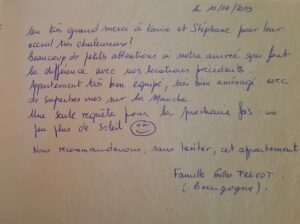 le 10/08/2019
Un très grand merci à Karine et Stéphane pour leur
accueil très chaleureux !
Beaucoup de petites attentions à notre arrivée qui font
la différence avec nos locations précédentes...
Appartement très bien équipé, très bien aménagé avec
de superbes vues sur la Manche.
Une seule requête pour la prochaine fois : un
peu plus de soleil
Nous recommanderons, sans hésiter, cet appartement
Famille Gilles PREVOT
(Bourgogne)